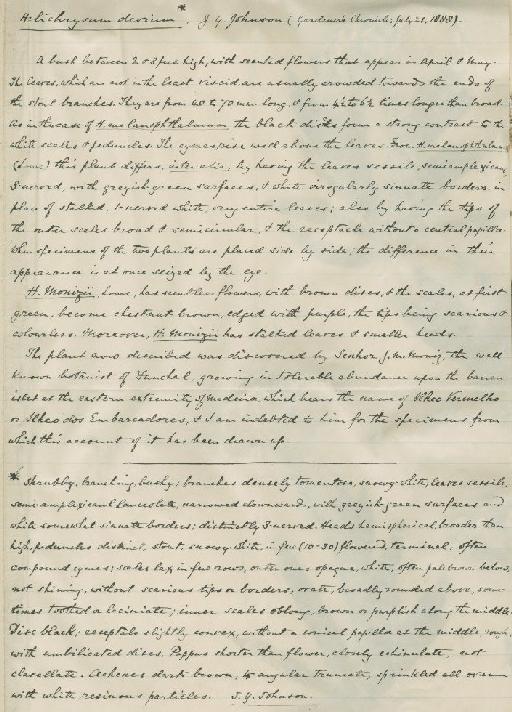 Helichrysum devium*, J. Y. Johnson (Gardener's Chronicle, July 21, 1888).
A bush between 2 & 3 feet high, with scented flowers that appear in April & May.
The leaves, which are not in the least viscid are usually crowded towards the ends of
the stout branches. They are from 40 to 70 mm long, & from 4½ to 6½ times longer than broad.
As in the case of H. melanophthalmum the black disks form a strong contrast to the
white scales & peduncles. The cymes rise well above the leaves. From H. melanophthalmum
(Lowe) this plant differs, inter alia, by having the leaves sessile, semiamplexicaul,
3-nerved, with greyish green surfaces, & white irregularly sinuate borders, in
place of stalked, 1-nerved white, very entire leaves; also by having the tips of
the outer scales broad & semicircular, & the receptacle without a central papilla.
When specimens of the two plants are placed side by side, the difference in their
appearance is at once seized by the eye.
H. Monizii, Lowe, has scentless flowers, with brown discs, & the scales, at first
green, become chestnut brown, edged with purple, the tips being scarious &
colourless. Moreover, H. Monizii has stalked leaves & smaller heads.
The plant now described was discovered by Senhor J. M. Moniz, the well
known botanist of Funchal, growing in tolerable abundance upon the barren
islet at the eastern extremity of Madeira, which bears the name of Ilheo Vermelho
or Ilheo dos Embarcadores, & I am indebted to him for the specimens from
which this account of it has been drawn up.
* Shrubby, branching, bushy; branches densely tomentose, snowy-white, leaves sessile,
semi-amplexicaul lanceolate, narrowed downward, with greyish-green surfaces and
white somewhat sinuate borders; distinctly 3-nerved. Heads hemispherical, broader than
high, peduncles distinct, stout, snowy white, in few (10-30) flowered, terminal, often
compound cymes; scales lax in few rows, outer ones opaque, white, often pale brown below,
not shining, without scarious tips or borders, ovate, broadly rounded above, some-
times toothed or laciniate; inner scales oblong, brown or purplish along the middle.
Disc black; receptacle slightly convex, without a conical papilla at the middle,
with umbilicated discs. Pappus shorter than flower, closely echinulate, not
clavellate. Achenes dark brown, angular truncate, sprinkled all over
with white resinous particles. J. Y. Johnson.